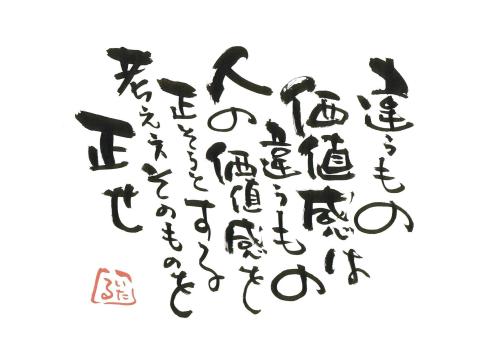 違うもの
価値感は
違うもの
人の
価値感を
正そうとする
考え方そのものを
正せ
いたる